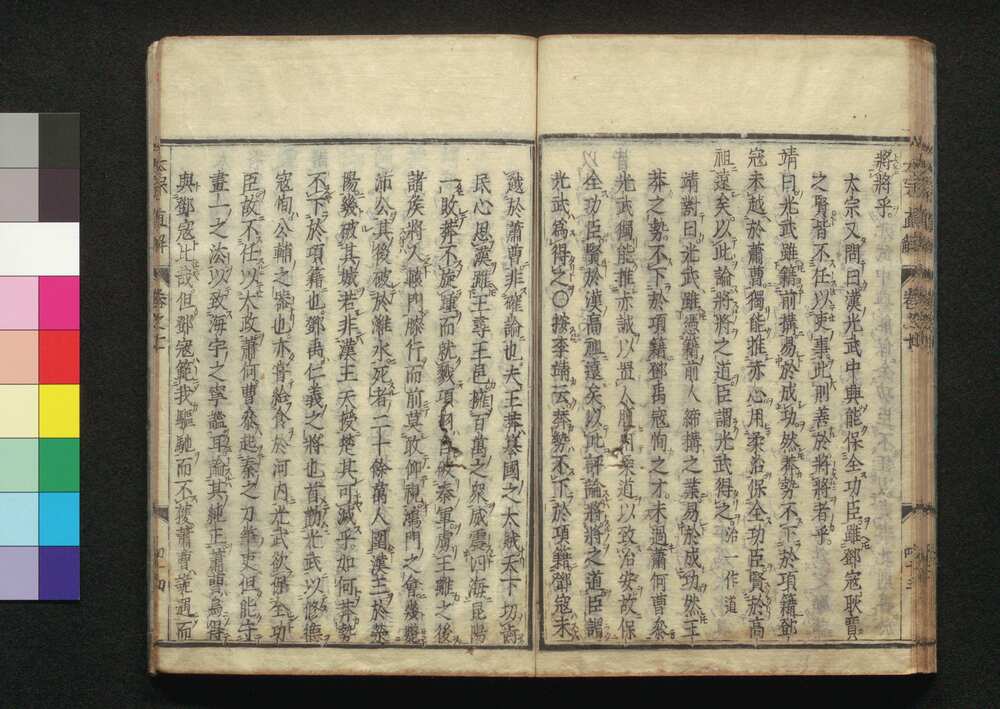 將將乎
太宗又問曰漢光武中興能保全功臣雖鄧寇耿賈
之賢皆不任以吏事此則善於將將者乎
靖曰光武雖籍前搆易於成功然莽勢不下於項籍鄧
寇未越於蕭曹獨能推赤心用柔治保全功臣賢於高
祖遠矣以此論將將之道臣謂光武得之 治一作道
靖對曰光武雖憑籍前人締搆之業易於成功然王
莽之勢不下於項籍鄧禹寇恂之才未過蕭何曹參
光武獨能推赤誠以置人腹用柔道以致治安故保
全功臣賢於漢高祖遠矣以此評論將將之道臣謂
光武為得之〇按李靖云莽勢不下於項籍鄧寇未
越於蕭曹非確論也夫王莽簒國之大賊天下切齒
民心思漢雖王尋王邑擁百萬之衆威震四海昆陽
一敗莽不旋踵而就戮項羽破秦軍虜王離之後
諸侯將入轅門膝行而前莫敢仰視鴻門之會幾
沛公其後破於濉水死者二十餘萬人圍漢王於滎
陽幾被其嫉若非漢王天授楚其可滅乎如何莽勢
不下於項籍也鄧禹仁義之將也首勸光武以修德
寇恂公輔之器也亦脅給食於河内光武欲保全功
臣故不任以大政蕭何曹參起秦之刀筆吏但能守
畫一之法以致海宇之寧謐耳論其純正蕭曹為得
與鄧寇比哉但鄧寇範我驅馳而不獲蕭曹詭遇而
太宗直解
卷之十
四十四